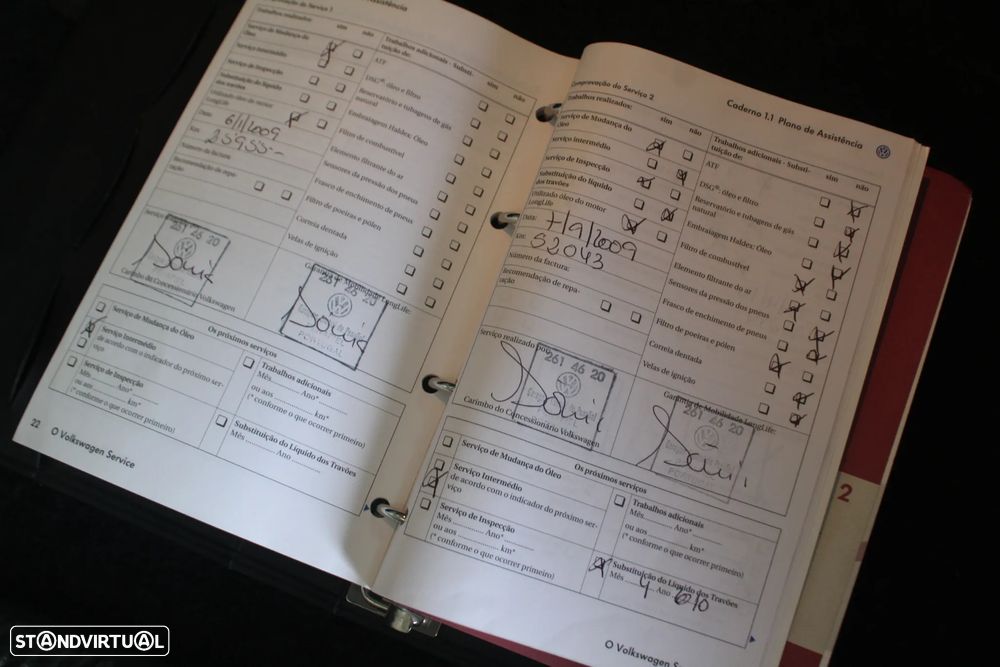 Comprovação do Serviço 1
Assistência
Trabalhos realizados:
sim não
Serviço de Mudança do
Óleo
Serviço Intermédio
Serviço de Inspecção
Substituição do líquido
dos travões
Utilizado óleo do motor
LongLife
Data:
6/1/2009
Km:
25955.-
Número da factura:
Recomendação de repa-
ração
Trabalhos adicionais - Substi-
tuição de:
sim não
ATF
DSG®: óleo e filtro
Reservatório e tubagens de gás
natural
Embraiagem Haldex: Óleo
Filtro de combustível
Elemento filtrante do ar
Sensores da pressão dos pneus
Frasco de enchimento de pneus
Filtro de poeiras e pólen
Correia dentada
Velas de ignição
261 46 20
Carimbo do Concessionário Volkswagen
Garantia de Mobilidade LongLife:
261 46 20
PORTUGAL
Os próximos serviços
Serviço de Mudança do Óleo
Serviço Intermédio
de acordo com o indicador do próximo ser-
viço
Serviço de Inspecção
Mês ............ Ano* ............
ou aos ............ km*
(* conforme o que ocorrer primeiro)
Trabalhos adicionais
Mês ............ Ano* ............
ou aos ............ km*
(* conforme o que ocorrer primeiro)
Substituição do Líquido dos Travões
Mês ............ Ano ............
22 O Volkswagen Service
Comprovação do Serviço 2
Caderno 1.1 Plano de Assistência
Trabalhos realizados:
sim não
Serviço de Mudança do
Óleo
Serviço Intermédio
Serviço de Inspecção
Substituição do líquido
dos travões
Utilizado óleo do motor
LongLife
Data:
7/9/2009
Km:
52043
Número da factura:
Recomendação de repa-
ração
Trabalhos adicionais - Substi-
tuição de:
sim não
ATF
DSG®: óleo e filtro
Reservatório e tubagens de gás
natural
Embraiagem Haldex: Óleo
Filtro de combustível
Elemento filtrante do ar
Sensores da pressão dos pneus
Frasco de enchimento de pneus
Filtro de poeiras e pólen
Correia dentada
Velas de ignição
Serviço realizado por:
261 46 20
Carimbo do Concessionário Volkswagen
Garantia de Mobilidade LongLife:
261 46 20
Os próximos serviços
Serviço de Mudança do Óleo
Serviço Intermédio
de acordo com o indicador do próximo ser-
viço
Serviço de Inspecção
Mês ............ Ano* ............
ou aos ............ km*
(* conforme o que ocorrer primeiro)
Trabalhos adicionais
Mês ............ Ano* ............
ou aos ............ km*
(* conforme o que ocorrer primeiro)
Substituição do Líquido dos Travões
Mês 4 Ano
O Volkswagen Se
2
STANDVIRTUAL